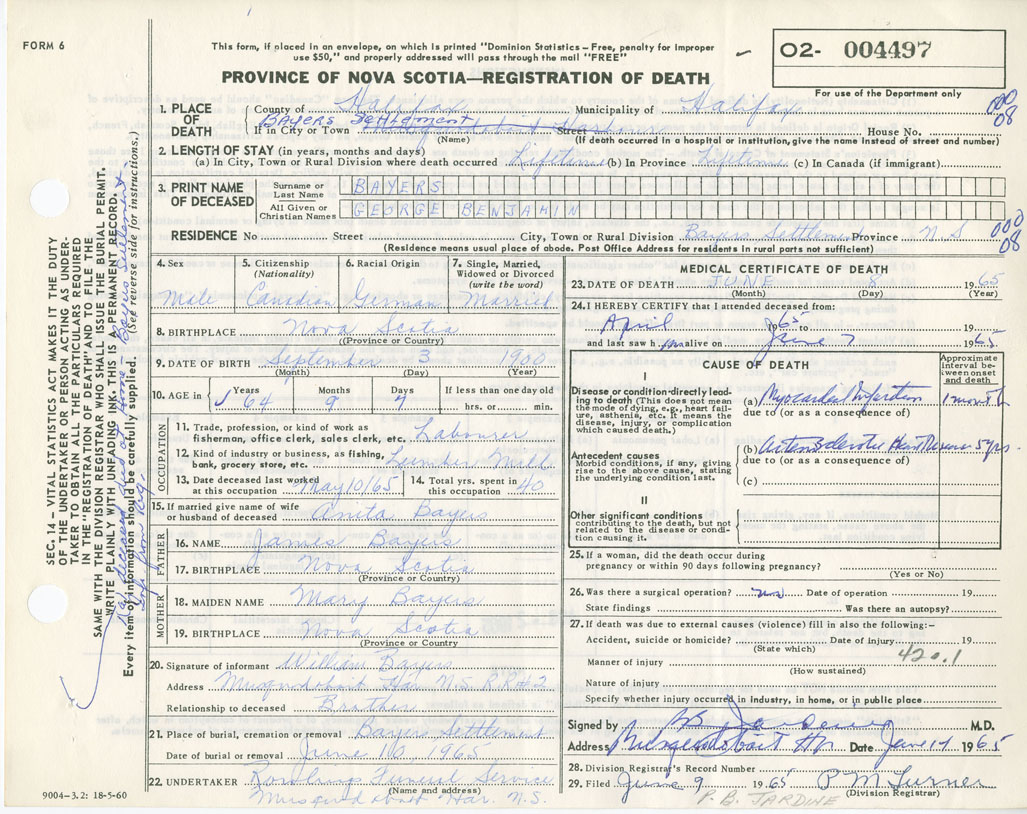 FORM 6
This form, if placed in an envelope, on which is printed "Dominion Statistics – Free, penalty for improper
use $50," and properly addressed will pass through the mail "FREE"
O2- 004497
PROVINCE OF NOVA SCOTIA—REGISTRATION OF DEATH
For use of the Department only
1. PLACE OF DEATH
County of Halifax Municipality of Halifax
000
08
BAYERS Settlement
If in City or Town Street House No.
(Name) (If death occurred in a hospital or institution, give the name instead of street and number)
2. LENGTH OF STAY (in years, months and days)
(a) In City, Town or Rural Division where death occurred Lifetime (b) In Province Lifetime (c) In Canada (if immigrant)
3. PRINT NAME OF DECEASED
Surname or Last Name BAYERS
All Given or Christian Names GEORGE BENJAMIN
RESIDENCE No Street City, Town or Rural Division Bayers Settlement Province N.S
000
08
(Residence means usual place of abode. Post Office Address for residents in rural parts not sufficient)
4. Sex Male
5. Citizenship (Nationality) Canadian
6. Racial Origin German
7. Single, Married, Widowed or Divorced (write the word) Married
8. BIRTHPLACE Nova Scotia
(Province or Country)
9. DATE OF BIRTH September 3 1900
(Month) (Day) (Year)
10. AGE in Years 64 Months 9 Days 7 If less than one day old hrs. or min.
OCCUPATION
11. Trade, profession, or kind of work as
fisherman, office clerk, sales clerk, etc. Labourer
12. Kind of industry or business, as fishing,
bank, grocery store, etc. Lumber Mill
13. Date deceased last worked at this occupation May 10/65
14. Total yrs. spent in this occupation 40
15. If married give name of wife
or husband of deceased Anita Bayers
FATHER
16. NAME James Bayers
17. BIRTHPLACE Nova Scotia
(Province or Country)
MOTHER
18. MAIDEN NAME Mary Bayers
19. BIRTHPLACE Nova Scotia
(Province or Country)
20. Signature of informant William Bayers
Address Musquodoboit Har N.S. R.R#2
Relationship to deceased Brother
21. Place of burial, cremation or removal Bayers Settlement
Date of burial or removal June 10 1965
22. UNDERTAKER Rowlings Funeral Service
(Name and address)
Musquodoboit Har. N.S.
9004–3.2: 18-5-60
MEDICAL CERTIFICATE OF DEATH
23. DATE OF DEATH JUNE 8 1965
(Month) (Day) (Year)
24. I HEREBY CERTIFY that I attended deceased from:
April 1965 to 19
and last saw him alive on June 7 1965
CAUSE OF DEATH
Approximate interval between onset and death
I
Disease or condition directly leading to death (This does not mean the mode of dying, e.g., heart failure, asthenia, etc. It means the disease, injury, or complication which caused death.)
(a) Myocardial Infarction 1 month
due to (or as a consequence of)
Antecedent causes
Morbid conditions, if any, giving rise to the above cause, stating the underlying condition last.
(b) Arteriosclerotic Heart Disease 5 yrs.
due to (or as a consequence of)
(c)
II
Other significant conditions
contributing to the death, but not related to the disease or condition causing it.
25. If a woman, did the death occur during
pregnancy or within 90 days following pregnancy?
(Yes or No)
26. Was there a surgical operation? no Date of operation 19
State findings Was there an autopsy?
27. If death was due to external causes (violence) fill in also the following:–
Accident, suicide or homicide? Date of injury 19
(State which)
420.1
Manner of injury
(How sustained)
Nature of injury
Specify whether injury occurred in industry, in home, or in public place
Signed by M.D.
Address Musquodoboit Hr. Date June 14 1965
28. Division Registrar's Record Number
29. Filed June 9 1965 P M Turner
(Division Registrar)
P. B. JARDINE
SEC. 14 – VITAL STATISTICS ACT MAKES IT THE DUTY
OF THE UNDERTAKER OR PERSON ACTING AS UNDER-
TAKER TO OBTAIN ALL THE PARTICULARS REQUIRED
IN THE "REGISTRATION OF DEATH" AND TO FILE THE
SAME WITH THE DIVISION REGISTRAR WHO SHALL ISSUE THE BURIAL PERMIT.
WRITE PLAINLY WITH UNFADING INK. THIS IS A PERMANENT RECORD.
Every item of information should be carefully supplied. (See reverse side for instructions.)
deceased died at Home – Bayers Settlement
from Reg.